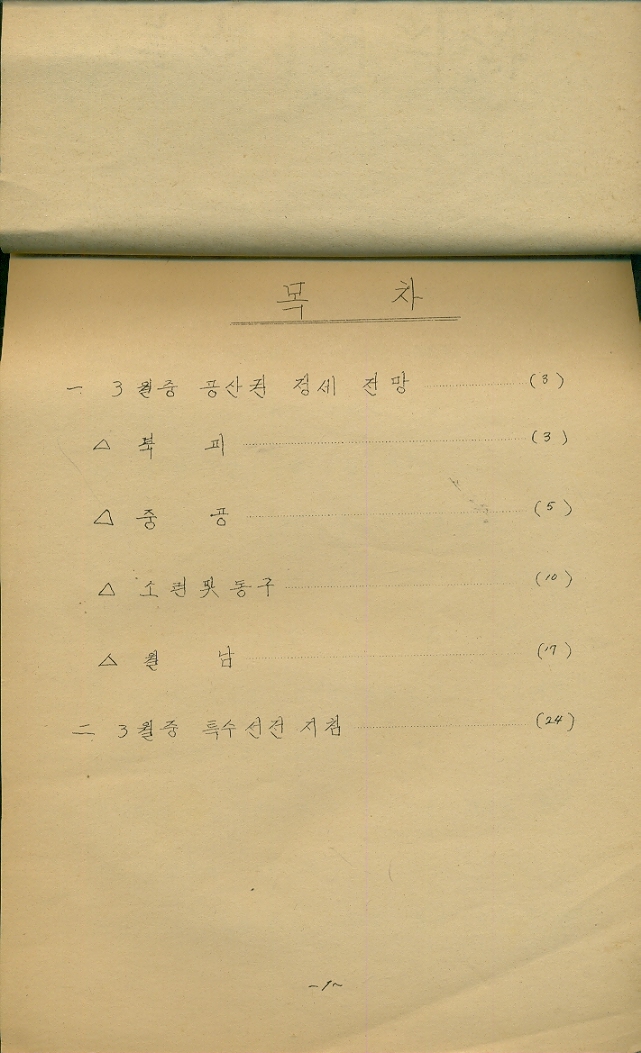 목 차
一 3월중 공산권 정세 전망 (3)
△ 북 괴 (3)
△ 중 공 (5)
△ 소련및동구 (10)
△ 월 남 (17)
二 3월중 특수선전지침 (24)
-1-